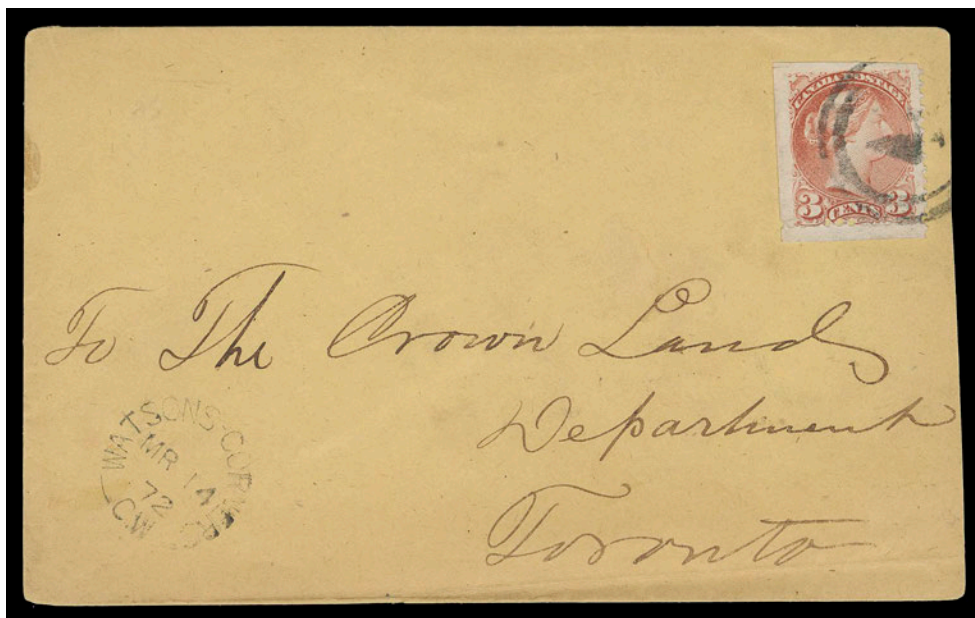 CANADA POSTAGE
3 CENTS 3
To The Crown Lands
Department
Toronto
WATSONS-CORNERS
MR 14
72
C.W